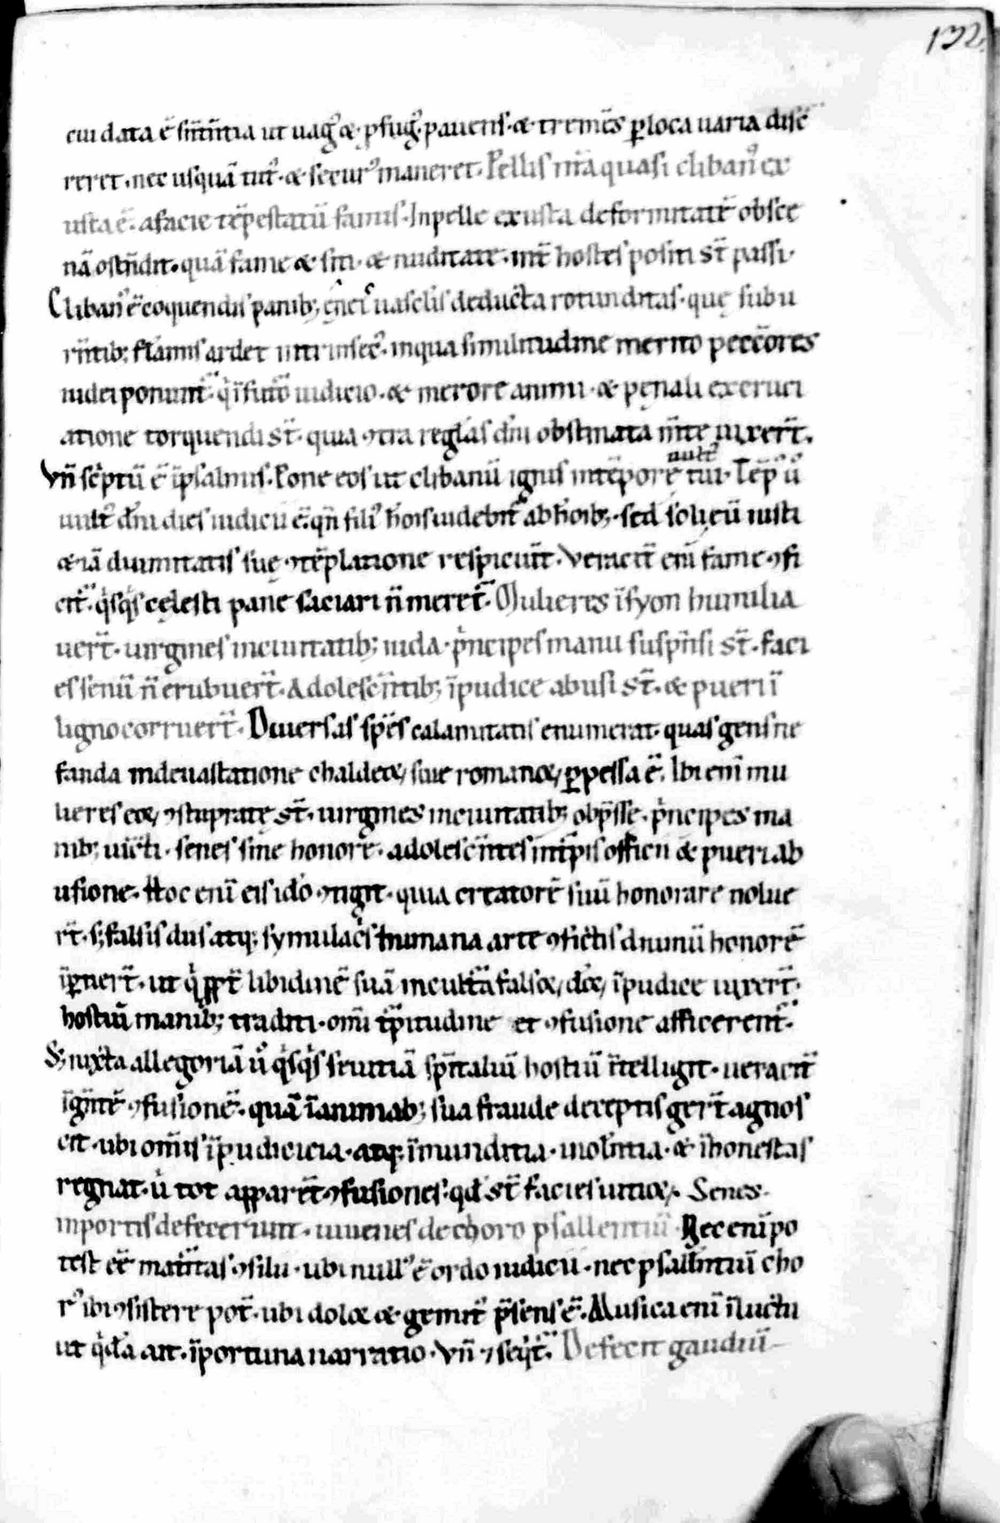 132.
cui data ē sn̄tentia ut uagꝰ & ꝓfugꝰ pauens & tremēs ꝑ loca uaria disc̄
reret, nec usquā tutꝰ & securꝰ maneret. Pellis nr̄a quasi clibanꝰ ex
usta ē. a facie tēpestatū famis. In pelle exusta deformitatē obsce
nā ostn̄dit. quā fame & siti & nuditate. int̄ hostes positi st̄ passi.
Clibanꝰ ē coquendis panibꝫ, uasculis deducta rotunditas. quę subu
rn̄tibꝫ flāmis ardet intrinsecꝰ. in qua similitudine merito peccōres
iudei ponunt̄. q̇ ī futō iudicio. & merore animi & pęnali excruci
atione torquendi st̄. quia ꝯtra reglās dn̄i obstinata m̄te uixer̄t.
Vn̄ sc̄ptū ē ī psalmis. Pone eos ut clibanū ignis in tēpore uult̄ tui. Tēp u̇
uultꝰ dn̄i dies iudicii ē. qn̄ filiꝰ hōis uidebit̄ ab hōibꝫ. sed solū eū iusti
& iā diuinitatis suę ꝯtēplatione respiciūt. Veracit̄ eni fame ꝯfi
cit̄. q̇sq̇s cęlesti pane saciari n̄ meret̄. Mulieres ī syon humilia
uer̄t. uirgines in ciuitatibꝫ iuda. pͥncipes manu suspn̄si st̄. faci
es senū n̄ erubuer̄t. Adolescn̄tibꝫ īpudice abusi st̄. & pueri ī
ligno corruer̄t. Diuersas spēs calamitatis enumerat. quas gens ne
fanda in deuastatione chaldeoꝝ, siue romanoꝝ, ꝑpessa ē. Ibi eni mu
lieres eoꝝ, ꝯstupratę st̄. uirgines in ciuitatibꝫ obp̄sse. pͥncipes ma
nibꝫ uicti. senes sine honore. adolescn̄tes īt̄ īpii officii & pueri ab
usione. Hoc enī eis ido ꝯtigit. quia creatorē suū honorare nolue
rt̄. sꝫ falsis diis atqꝫ symulacͥs humana arte ꝯfictis diuinū honorē
īpēnder̄t. ut q̇ ꝓpt̄ libidinē suā in cultū falsoꝝ, dōꝝ, īpudice uixer̄t.
hostiū manibꝫ traditi. omi t̄pitudine et ꝯfusione afficerent̄.
Sꝫ iuxta allegoriā u̇ q̇sq̇s seuitiā spītaliū hostiū ītelligit. ueracit̄
īgn̄tē ꝯfusionē. quā ī animabꝫ sua fraude deceptis ger̄t agnos
cit. ubi om̄is īpudicicia. atqꝫ īmunditia. uioln̄tia. & īhonestas
regnat. u̇ tot apparēt ꝯfusiones. qd̄ st̄ facies uitioꝝ. Senes
in portis defecerunt. iuuenes de choro psallentiū. Nec enī po
test eē maturitas ꝯsilii. ubi nullꝰ ē ordo iudicii. nec psallentiū cho
rꝰ ibi ꝯsistere pot̄. ubi dolor & gemitꝰ p̄sens ē. Musica enī ī luctu
ut q̇dā ait. īportuna narratio. Vn̄ ⁊ seq̇t̄. Defecit gaudiū